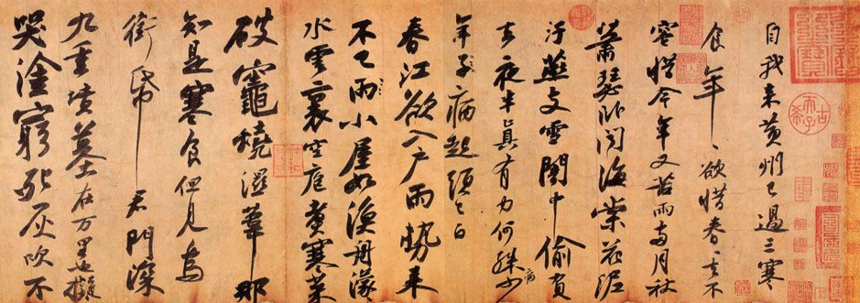 自我来黄州已過三寒
食年〻欲惜春〻去不
容惜今年又苦雨兩月秋
蕭瑟卧聞海棠花泥
汙燕支雪闇中偷負
去夜半真有力何殊少
病
年子病起頭已白
春江欲入户雨勢来
不已雨小屋如漁舟濛〻
水雲裏空庖煮寒菜
破竈燒濕葦那
知是寒食但見烏
銜帋君門深
九重墳墓在万里也擬
哭塗窮死灰吹不